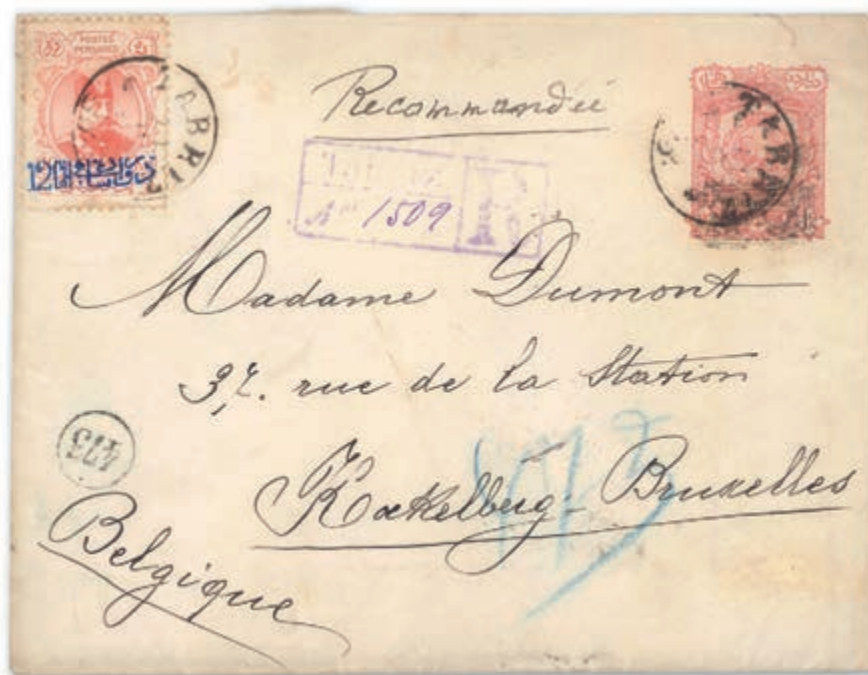 POSTES PERSANES
TABRIZ
12
Recommandée
TABRIZ
Tabriz
No 1509
R
Madame Dumont
37. rue de la Station
Koekelberg-Bruxelles
Belgique
473